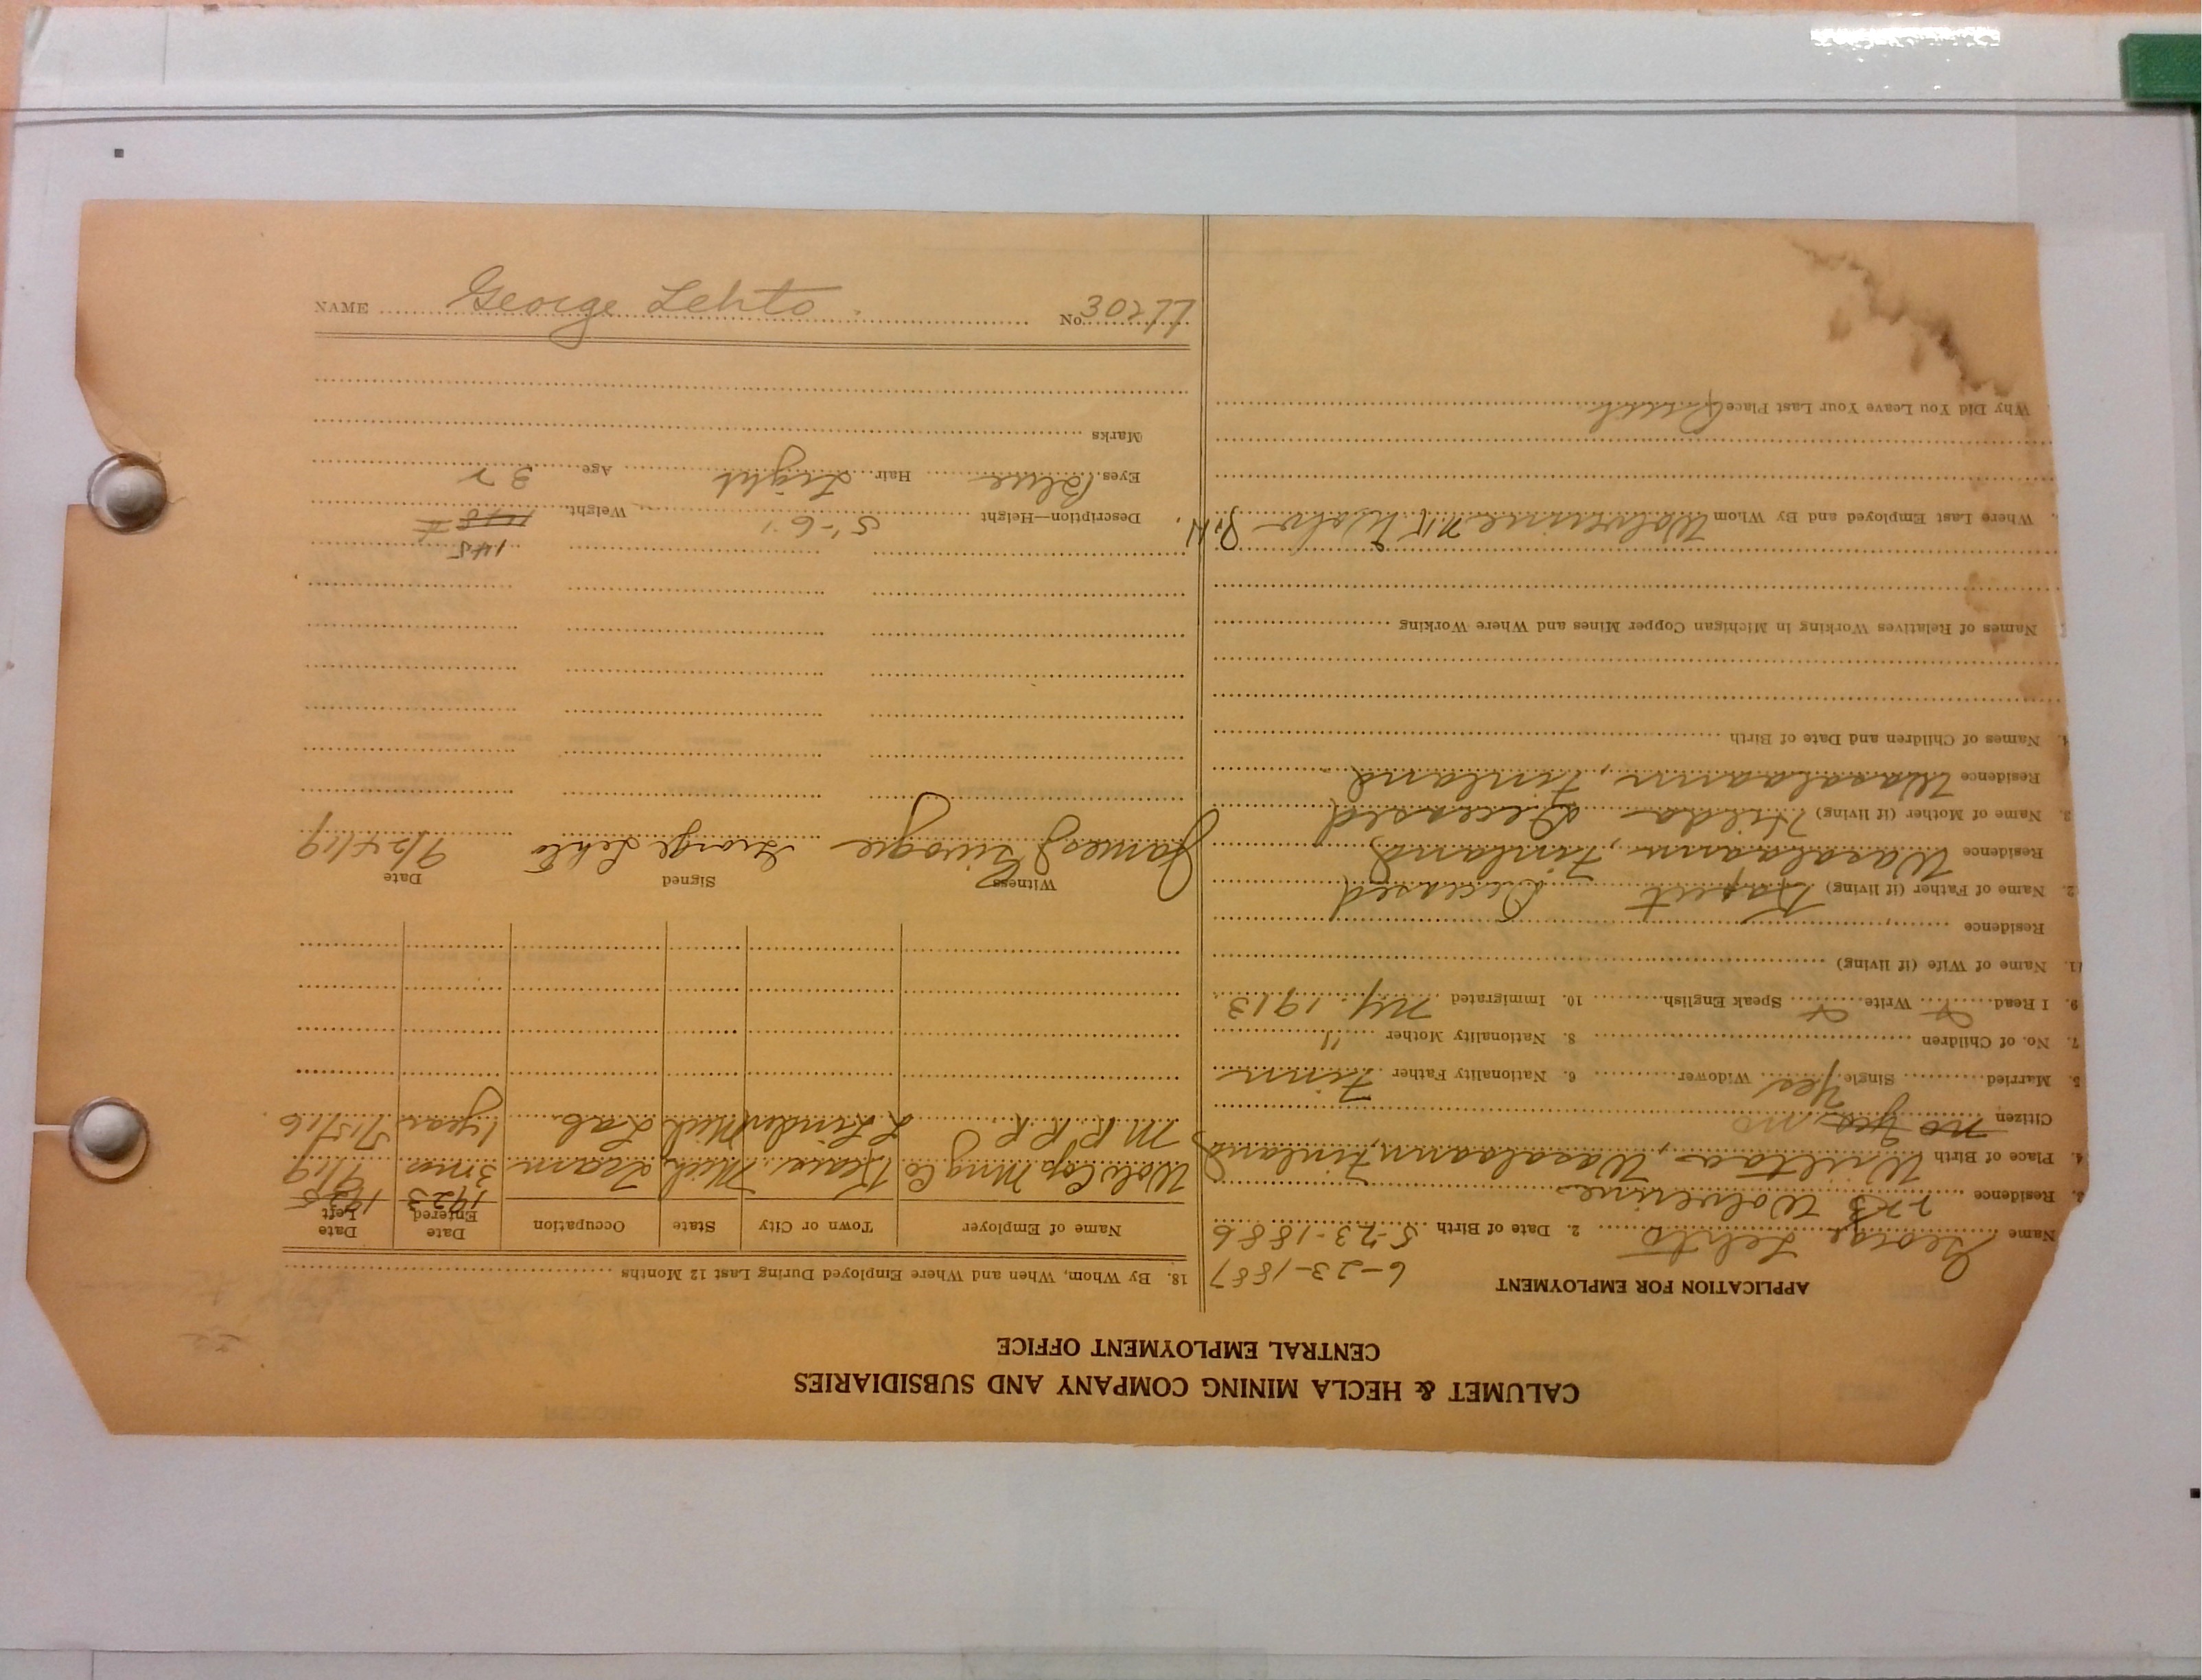 CALUMET & HECLA MINING COMPANY AND SUBSIDIARIES
CENTRAL EMPLOYMENT OFFICE
APPLICATION FOR EMPLOYMENT
6-23-1887
Name George Lehto 2. Date of Birth 5-23-1886
3. Residence 223 Wolverine
4. Place of Birth Wasalaann, Finland
Citizen no yes no
5. Married Single Yes Widower 6. Nationality Father Finn
7. No. of Children 8. Nationality Mother "
9. I Read Write Speak English 10. Immigrated NY. 1913
11. Name of Wife (if living)
Residence
2. Name of Father (if living) Deceased
Residence Wasalaann, Finland
3. Name of Mother (if living) Hilda Deceased
Residence Wasalaann, Finland
4. Names of Children and Date of Birth
Names of Relatives Working in Michigan Copper Mines and Where Working
Where Last Employed and By Whom Wolverine
Why Did You Leave Your Last Place Quit
18. By Whom, When and Where Employed During Last 12 Months
Name of Employer Town or City State Occupation Date Entered Date Left
1923
Wolv Cop Mng Co Mich Tram 3 mos 9/19
M R R R Mich Lab. 1 year
Witness Signed Date
James George Lehto 9/24/19
145
Description—Height 5'-6" Weight 148 #
Eyes Blue Hair Light Age 32
Marks
NAME George Lehto. No. 30277